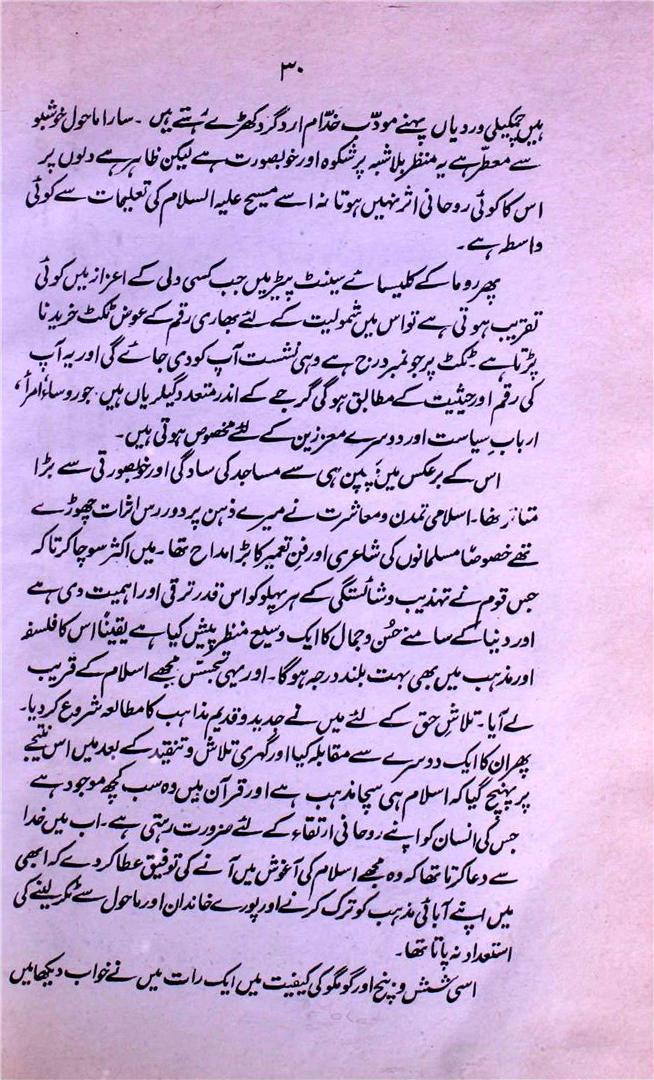 ۳۰
ہیں چمکیلی وردیاں پہنے مودّب خدّام اردگرد کھڑے رہتے ہیں ۔ سارا ماحول خوشبو
سے معطّر ہے یہ منظر بلاشبہ پرشکوہ اور خوبصورت ہے لیکن ظاہر ہے دلوں پر
اس کا کوئی روحانی اثر نہیں ہوتا نہ اسے مسیح علیہ السلام کی تعلیمات سے کوئی
واسطہ ہے۔
پھر روما کے کلیسائے سینٹ پیٹر میں جب کسی ولی کے اعزاز میں کوئی
تقریب ہوتی ہے تو اس میں شمولیت کے لئے بھاری رقم کے عوض ٹکٹ خریدنا
پڑتا ہے۔ ٹکٹ پر جو نمبر درج ہے وہی نشست آپ کو دی جائے گی اور یہ آپ
کی رقم اور حیثیت کے مطابق ہوگی گرجے کے اندر متعدد گیلریاں ہیں۔ جو روساء، امرأ،
اربابِ سیاست اور دوسرے معززین کے لئے مخصوص ہوتی ہیں۔
اس کے برعکس میں بچپن ہی سے مساجد کی سادگی اور خوبصورتی سے بڑا
متاثر تھا۔ اسلامی تمدن ومعاشرت نے میرے ذہن پر دوررس اثرات چھوڑے
تھے خصوصاً مسلمانوں کی شاعری اور فن تعمیر کا بڑا مداح تھا۔ میں اکثر سوچا کرتا کہ
جس قوم نے تہذیب وشائستگی کے ہر پہلو کو اس قدر ترقی اور اہمیت دی ہے
اور دنیا کے سامنے حسُن وجمال کا ایک وسیع منظر پیش کیا ہے یقیناً اس کا فلسفہ
اور مذہب میں بھی بہت بلند درجہ ہوگا۔ اور یہی تجسّس مجھے اسلام کے قریب
لے آیا۔ تلاشِ حق کے لئے میں نے جدید وقدیم مذاہب کا مطالعہ شروع کر دیا۔
پھر ان کا ایک دوسرے سے مقابلہ کیا اور گہری تلاش وتنقید کے بعد میں اس نتیجے
پر پہنچ گیا کہ اسلام ہی سچا مذہب ہے اور قرآن میں وہ سب کچھ موجود ہے
جس کی انسان کو اپنے روحانی ارتقاء کے لئے ضرورت رہتی ہے۔ اب میں خدا
سے دعا کرتا تھا کہ وہ مجھے اسلام کی آغوش میں آنے کی توفیق عطا کر دے کہ ابھی
میں اپنے آبائی مذہب کو ترک کرنے اور پورے خاندان اور ماحول سے ٹکر لینے کی
استعداد نہ پاتا تھا۔
اسی شش وپنج اور گومگو کی کیفیت میں ایک رات میں نے خواب دیکھا میں